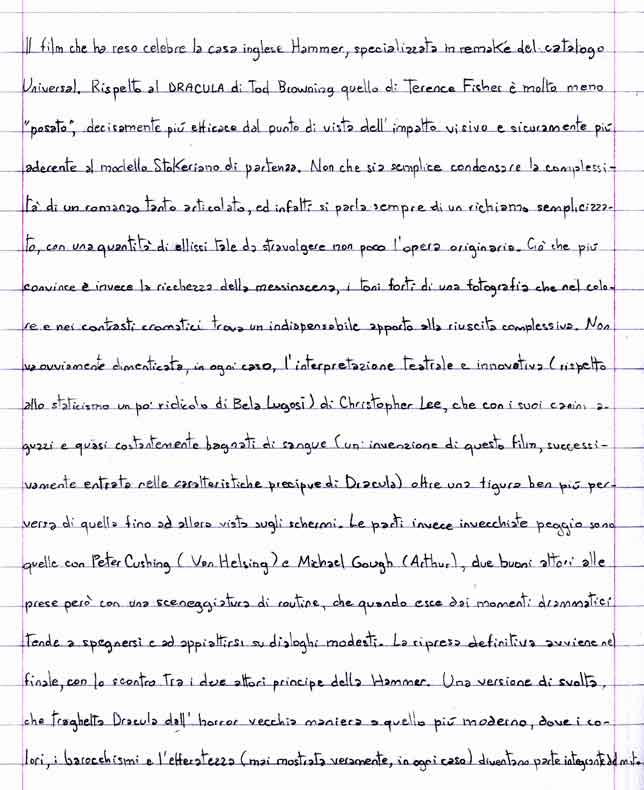 Il film che ha reso celebre la casa inglese Hammer, specializzata in remake del catalogo
Universal. Rispetto al DRACULA di Tod Browning quello di Terence Fisher è molto meno
"posato", decisamente più efficace dal punto di vista dell'impatto visivo e sicuramente più
aderente al modello Stokeriano di partenza. Non che sia semplice condensare la complessi-
tà di un romanzo tanto articolato, ed infatti si parla sempre di un richiamo semplicizza-
to, con una quantità di ellissi tale da stravolgere non poco l'opera originaria. Ciò che più
convince è invece la ricchezza della messinscena, i toni forti di una fotografia che nel colo-
re e nei contrasti cromatici trova un indispensabile apporto alla riuscita complessiva. Non
va ovviamente dimenticata, in ogni caso, l'interpretazione teatrale e innovativa (rispetto
allo staticismo un po' ridicolo di Bela Lugosi) di Christopher Lee, che con i suoi canini a-
guzzi e quasi costantemente bagnati di sangue (un'invenzione di questo film, successi-
vamente entrata nelle caratteristiche precipue di Dracula) offre una figura ben più per-
versa di quella fino ad allora vista sugli schermi. Le parti invece invecchiate peggio sono
quelle con Peter Cushing (Van Helsing) e Michael Gough (Arthur), due buoni attori alle
prese però con una sceneggiatura di routine, che quando esce dai momenti drammatici
tende a spegnersi e ad appiattirsi su dialoghi modesti. La ripresa definitiva avviene nel
finale, con lo scontro tra i due attori principe della Hammer. Una versione di svolta,
che traghetta Dracula dall'horror vecchia maniera a quello più moderno, dove i co-
lori, i barocchismi e l'efferatezza (mai mostrata veramente, in ogni caso) diventano parte integrante del mito.